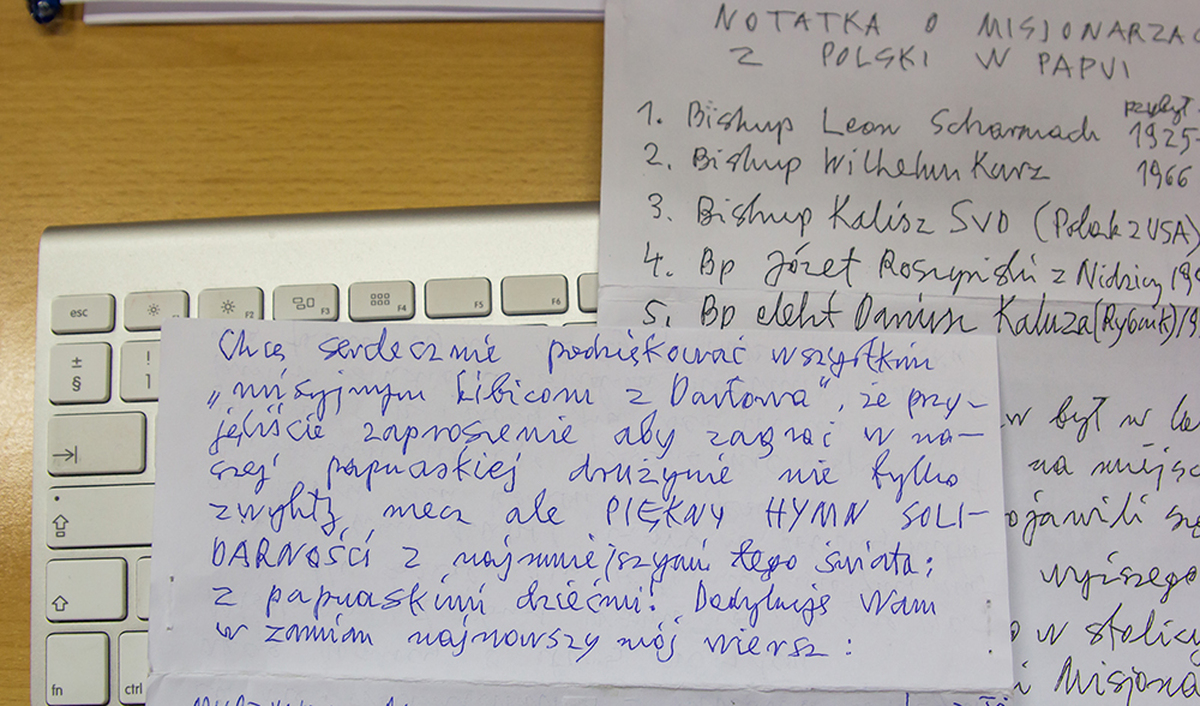 NOTATKA O MISJONARZAC
Z POLSKI W PAPUI
przybył
1. Bishup Leon Scharmach 1925-
2. Bishup Wilhelm Kurz 1966
3. Bishup Kalisz SVD (Polak z USA)
4. Bp Józef Roszyński z Nidzicy 19
5. Bp elekt Dariusz Kałuża (Rybnik) 19
Chcę serdecznie podziękować wszystkim
„misyjnym kibicom z Darłowa", że przy-
jęliście zaproszenie aby zagrać w na-
szej papuaskiej drużynie nie tylko
zwykły mecz ale PIĘKNY HYMN SOLI-
DARNOŚCI z najmniejszymi tego świata:
z papuaskimi dziećmi! Dedykuję Wam
w zamian najnowszy mój wiersz:
w był w
na miejsc
ojawili się
wyższego
w stolicy
i Misjona
esc
F2
F3
F4
F5
F6
±
§
!
1
fn
ctrl